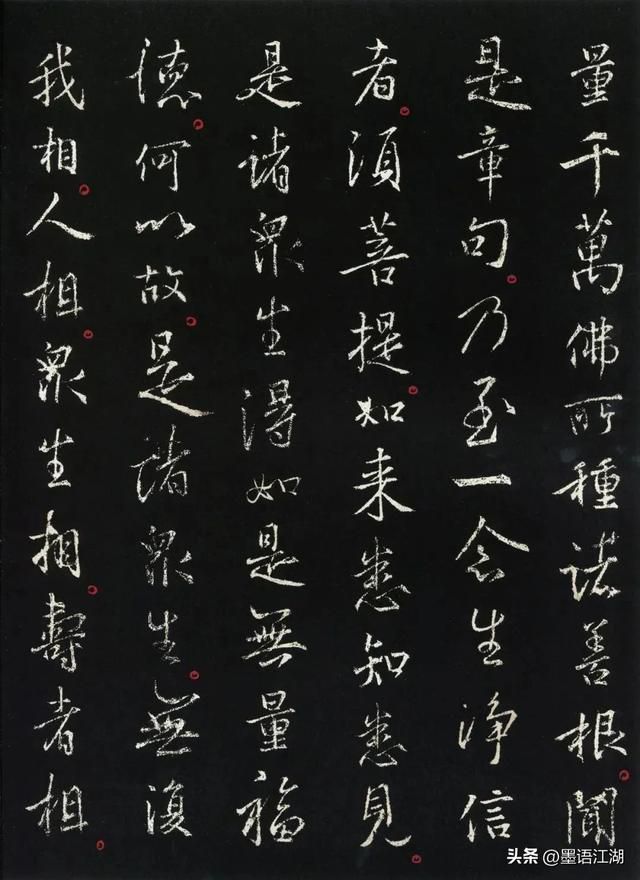 量千萬佛所種諸善根聞
是章句乃至一念生淨信
者須菩提如来悉知悉見
是諸眾生得如是無量福
德何以故是諸眾生無復
我相人相眾生相壽者相
头条 @墨语江湖